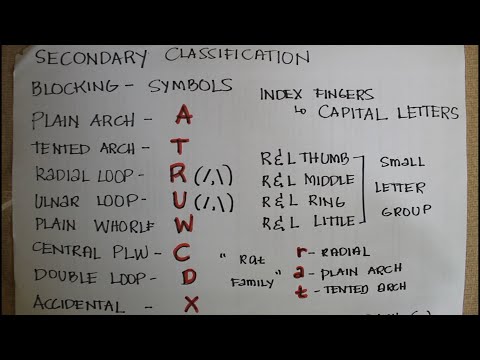 SECONDARY CLASSIFICATION
BLOCKING - SYMBOLS
PLAIN ARCH - A
TENTED ARCH - T
RADIAL LOOP - R (/,\)
ULNAR LOOP - U (/,\)
PLAIN WHORLE W
CENTRAL PLW - C
DOUBLE LOOP - D
ACCIDENTAL - X
INDEX FINGERS
↳ CAPITAL LETTERS
R&L THUMB
R&L MIDDLE
R&L RING
R&L LITTLE
SMALL
LETTER
GROUP
"Rat
Family"
r - RADIAL
a - PLAIN ARCH
t - TENTED ARCH